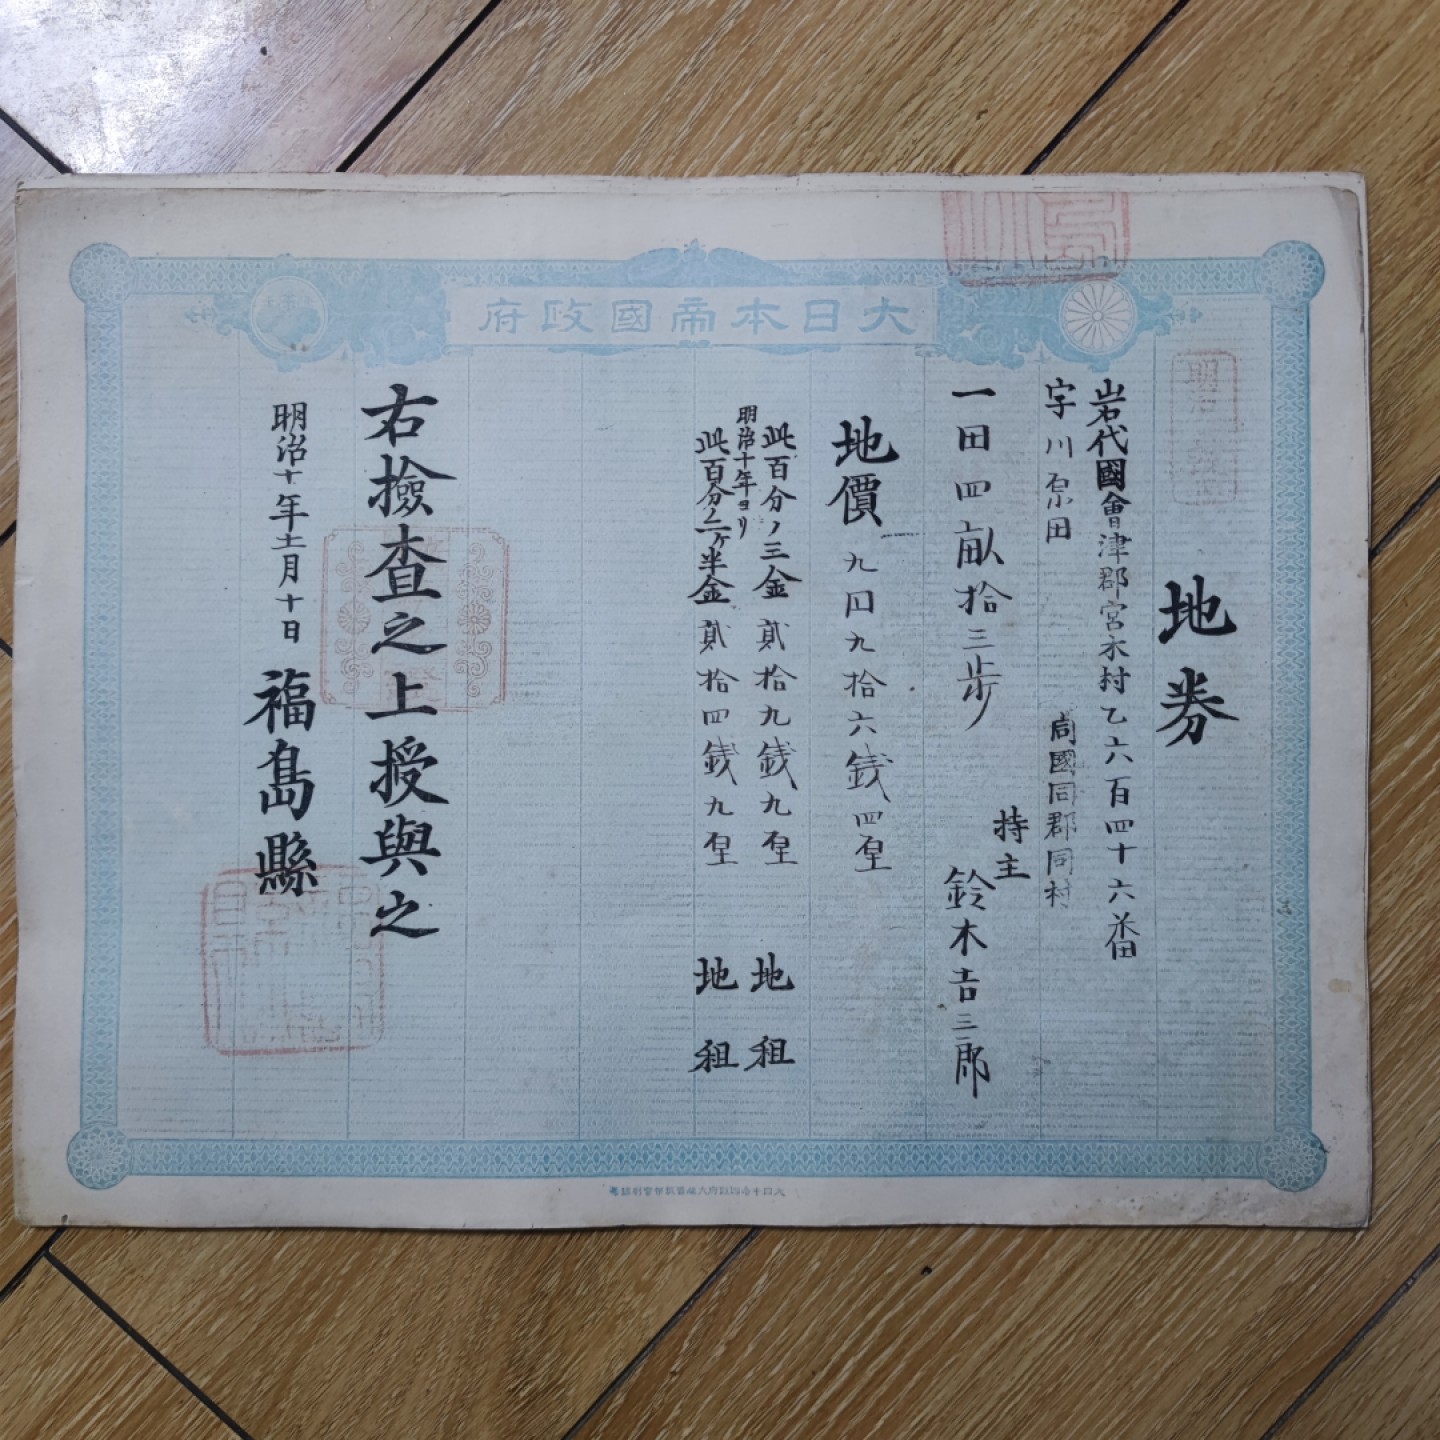 大日本帝國政府
地券
岩代國會津郡宮木村乙六百四十六番
字川原田
同國同郡同村
持主
鈴木吉三郎
一田四畝拾三歩
地價 九円九拾六銭四厘
此百分ノ三金 貳拾九銭九厘 地租
明治十年ヨリ
此百分ノ二ヶ半金 貳拾四銭九厘 地租
右撿査之上授與之
明治十年十二月十日 福島縣